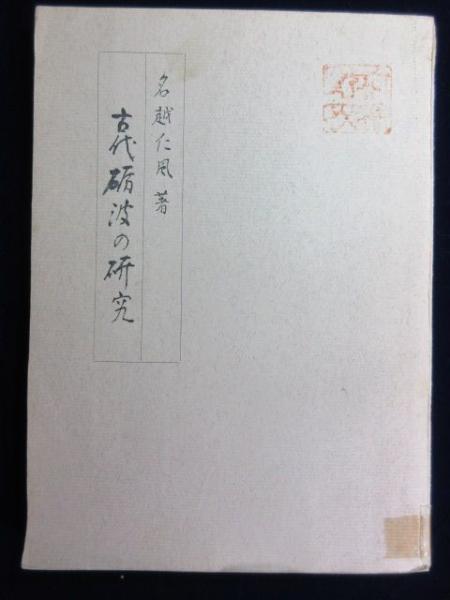 名越仁風 著
古代砺波の研究